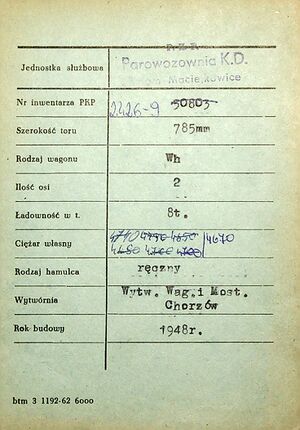 P.K.P.
Jednostka służbowa Parowozownia K.D.
Maciejkowice
Nr inwentarza PKP 2426-9 50803
Szerokość toru 785mm
Rodzaj wagonu Wh
Ilość osi 2
Ładowność w t. 8t.
Ciężar własny 4710 4750 4650 /4670
4680 4700 4700
Rodzaj hamulca ręczny
Wytwórnia Wytw. Wag. i Most.
Chorzów
Rok budowy 1948r.
btm 3 1192-62 6000